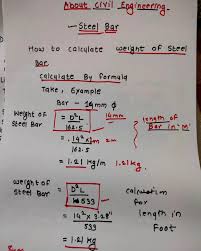 About Civil Engineering
- Steel Bar
How to calculate weight of Steel
Bar
calculate By formula
Take, Example
Bar - 14mm φ
Weight of Steel Bar = D²L / 162.5
14mm
length of Bar in 'M'
= 14² × 1m / 162.5
= 1.21 kg/m 1.21 kg
weight of Steel Bar = D²L / 533
calculation for length in Foot
= 14² × 3.28" / 533
= 1.21 kg